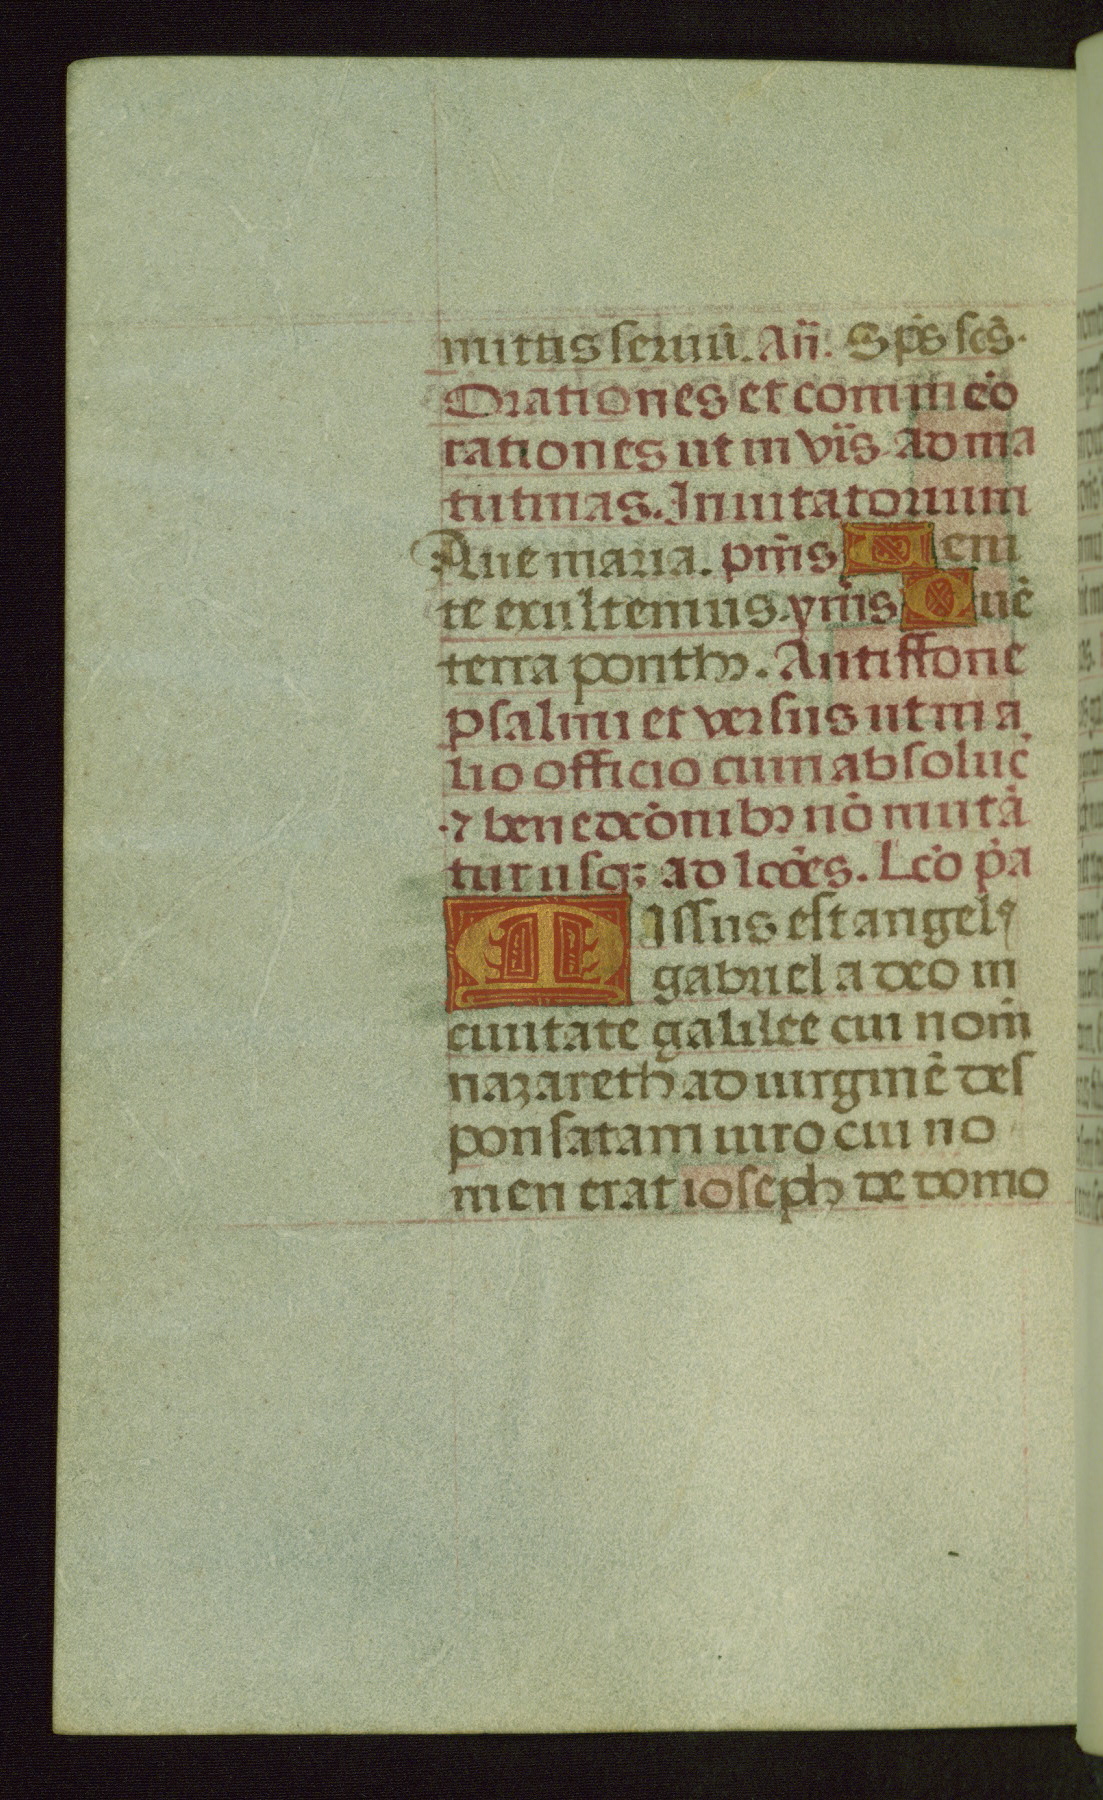 mittis seruũ. Añ. Sp̃s sc̃s.
Orationes et commeõ
rationes ut in vĩs ad ma
tutinas. Inuitatorium
Aue maria. p̃mis Veni
te exultemus. ym̃is Quẽ
terra ponthꝫ. Antiffone
psalmi et versus ut in a
lio officio cum absoluc̃
⁊ benedc̃õnibꝫ nõ mutã
tur usqꝫ ad lcões. Lcõ p̃a
Missus est angelꝰ
gabriel a deo in
ciuitate galilee cui nom̃
nazareth ad uirginẽ des
ponsatam uiro cui no
men erat ioseph de domo